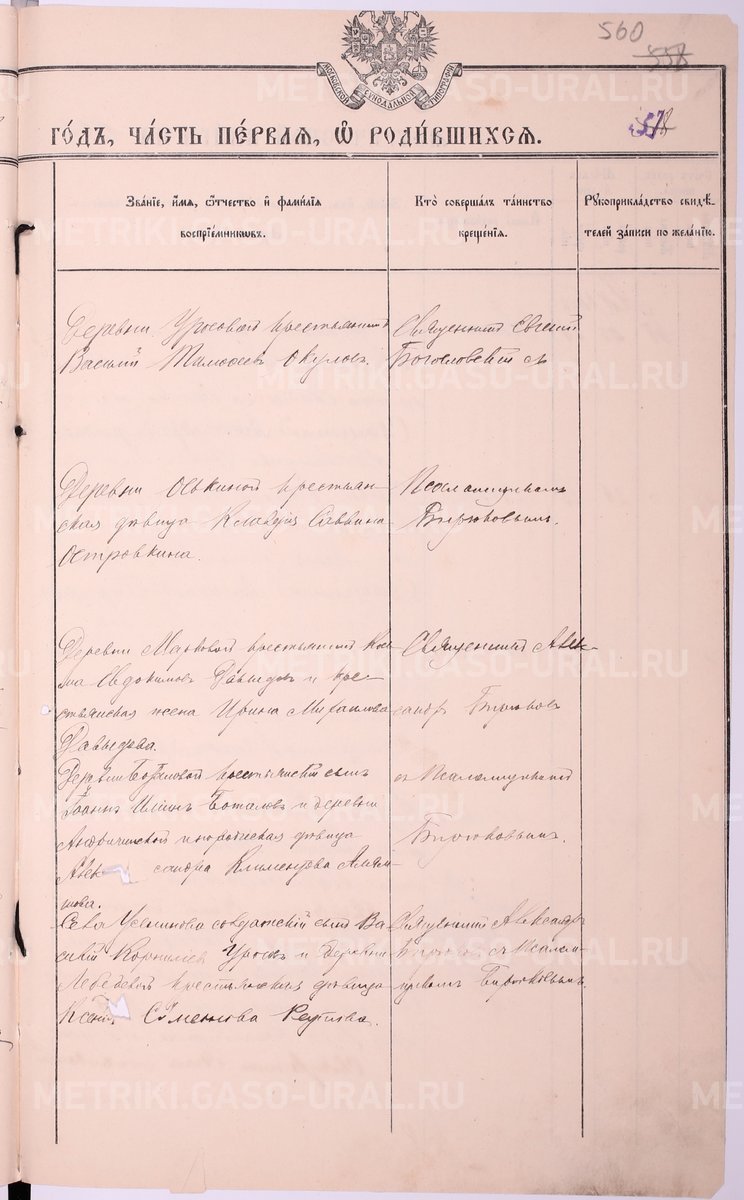 560
558
МОСКОВСКОЙ СѴНОДАЛЬНОЙ ТИПОГРАФІИ
ГОДЪ, ЧАСТЬ ПЕРВАЯ, Ѡ РОДИВШИХСЯ.
Званіе, имя, отчество и фамилія
воспріемниковъ.
Кто совершалъ таинство
крещенія.
Рукоприкладство свидѣ-
телей записи по желанію.
Деревни Уросовой крестьянинъ
Василій Тимофеевъ Окуловъ.
Священникъ Евгеній
Богословскій съ
Деревни Оськиной крестьян-
ская дѣвица Клавдія Саввина
Островкина.
Псаломщикомъ
Бирюковымъ.
Деревни Марковой крестьянинъ Козь-
ма Евдокимовъ Давыдовъ и кре-
стьянская жена Ирина Михаилова
Давыдова.
Священникъ Алек-
сандръ Бирюковъ
Деревни Боталовой крестьянскій сынъ
Іоаннъ Ильинъ Боталовъ и деревни
дѣвица
Алек сандра Климентова
съ Псаломщикомъ
Бирюковымъ.
Села сынъ Ва-
силій Корниліевъ и деревни
Лебедевой крестьянская дѣвица
Ксенія Семенова
Священникъ Александръ
Бирюковъ съ Псалом-
щикомъ Бирюковымъ.
METRIKI.GASO-URAL.RU